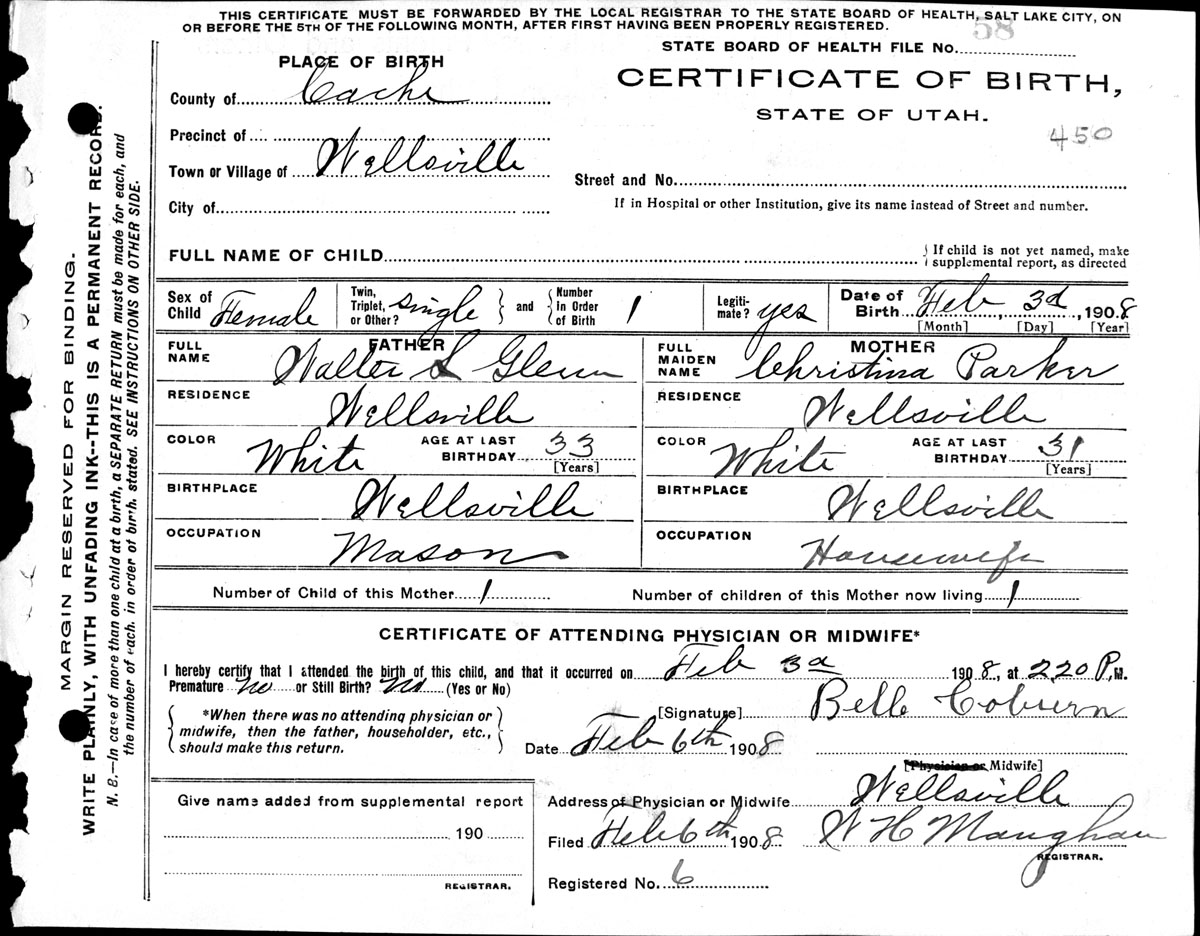 THIS CERTIFICATE MUST BE FORWARDED BY THE LOCAL REGISTRAR TO THE STATE BOARD OF HEALTH, SALT LAKE CITY, ON
OR BEFORE THE 5TH OF THE FOLLOWING MONTH, AFTER FIRST HAVING BEEN PROPERLY REGISTERED.
58
STATE BOARD OF HEALTH FILE No.
PLACE OF BIRTH
CERTIFICATE OF BIRTH,
STATE OF UTAH.
450
County of Cache
Precinct of
Town or Village of Wellsville
Street and No.
City of
If in Hospital or other Institution, give its name instead of Street and number.
FULL NAME OF CHILD
If child is not yet named, make
supplemental report, as directed
Sex of Child Female
Twin, Triplet, or Other? single and Number In Order of Birth 1
Legitimate? yes
Date of Birth Feb, 3d, 1908
[Month] [Day] [Year]
FATHER
FULL NAME Walter S Glenn
MOTHER
FULL MAIDEN NAME Christina Parker
RESIDENCE Wellsville
RESIDENCE Wellsville
COLOR White AGE AT LAST BIRTHDAY 33 [Years]
COLOR White AGE AT LAST BIRTHDAY 31 [Years]
BIRTHPLACE Wellsville
BIRTHPLACE Wellsville
OCCUPATION Mason
OCCUPATION Housewife
Number of Child of this Mother 1 Number of children of this Mother now living 1
CERTIFICATE OF ATTENDING PHYSICIAN OR MIDWIFE*
I hereby certify that I attended the birth of this child, and that it occurred on Feb 3d 1908, at 2,20 P.M.
Premature no or Still Birth? no (Yes or No)
*When there was no attending physician or
midwife, then the father, householder, etc.,
should make this return.
[Signature] Belle Coburn
Date Feb 6th 1908
[Physician or Midwife]
Give name added from supplemental report
190
REGISTRAR.
Address of Physician or Midwife Wellsville
Filed Feb 6th 1908 W H Maughan
REGISTRAR.
Registered No. 6
MARGIN RESERVED FOR BINDING.
WRITE PLAINLY, WITH UNFADING INK--THIS IS A PERMANENT RECORD.
N. B.—In case of more than one child at a birth, a SEPARATE RETURN must be made for each, and
the number of each, in order of birth, stated. SEE INSTRUCTIONS ON OTHER SIDE.